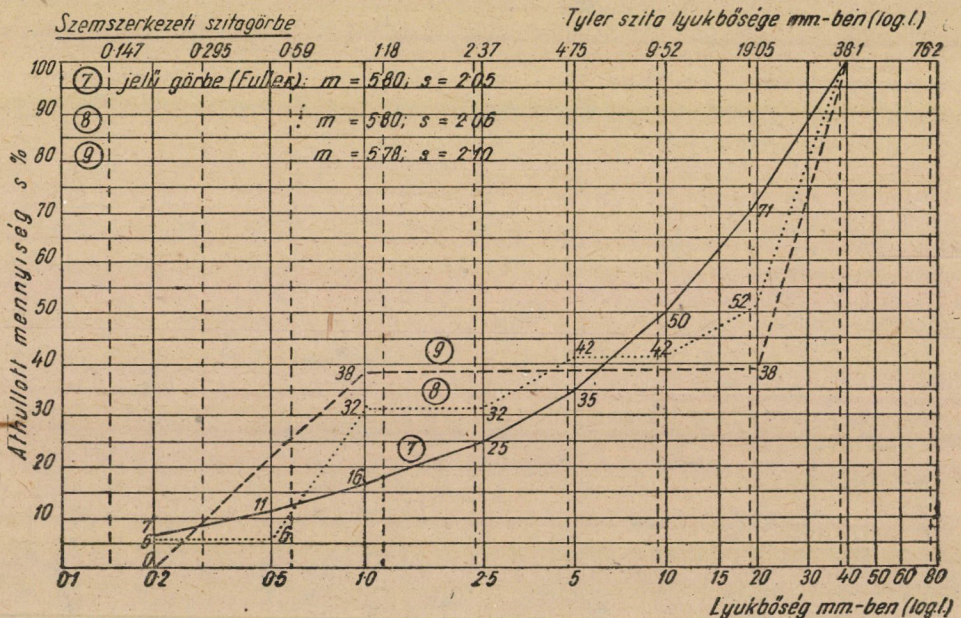 Szemszerkezeti szitagörbe
Tyler szita lyukbősége mm-ben (log.l.)
0·147 0·295 0·59 1·18 2·37 4·75 9·52 19·05 38·1 76·2
⑦ jelű görbe (Fuller): m = 5·80; s = 2·05
⑧ m = 5·80; s = 2·06
⑨ m = 5·78; s = 2·10
Áthullott mennyiség s %
100
90
80
70
60
50
40
30
20
10
71
52
50
42 42
⑨
38 38
⑧
35
32 32
⑦
25
16
11
7
6 6
0
0·1 0·2 0·5 1·0 2·5 5 10 15 20 30 40 50 60 80
Lyukbőség mm-ben (log.l.)